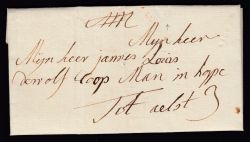 Mijn heer
Mijn heer jannes Louis
dewolf Coop Man in hoppe
Tot aelst 3